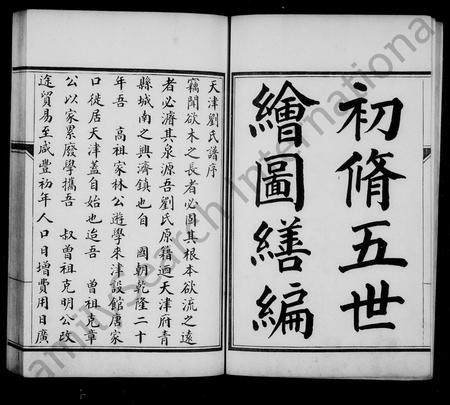 初脩五世
繪圖繕編
天津劉氏譜序
竊聞欲木之長者必固其根本欲流之遠
者必濬其泉源吾劉氏原籍迺天津府青
縣城南之興濟鎮也自 國朝乾隆二十
年吾 高祖家林公遊學來津設館唐家
口徙居天津蓋自始也迨吾 曾祖克章
公以家累廢學攜吾 叔曾祖克明公改
途貿易至咸豐初年人口日增費用日廣
familysearch international